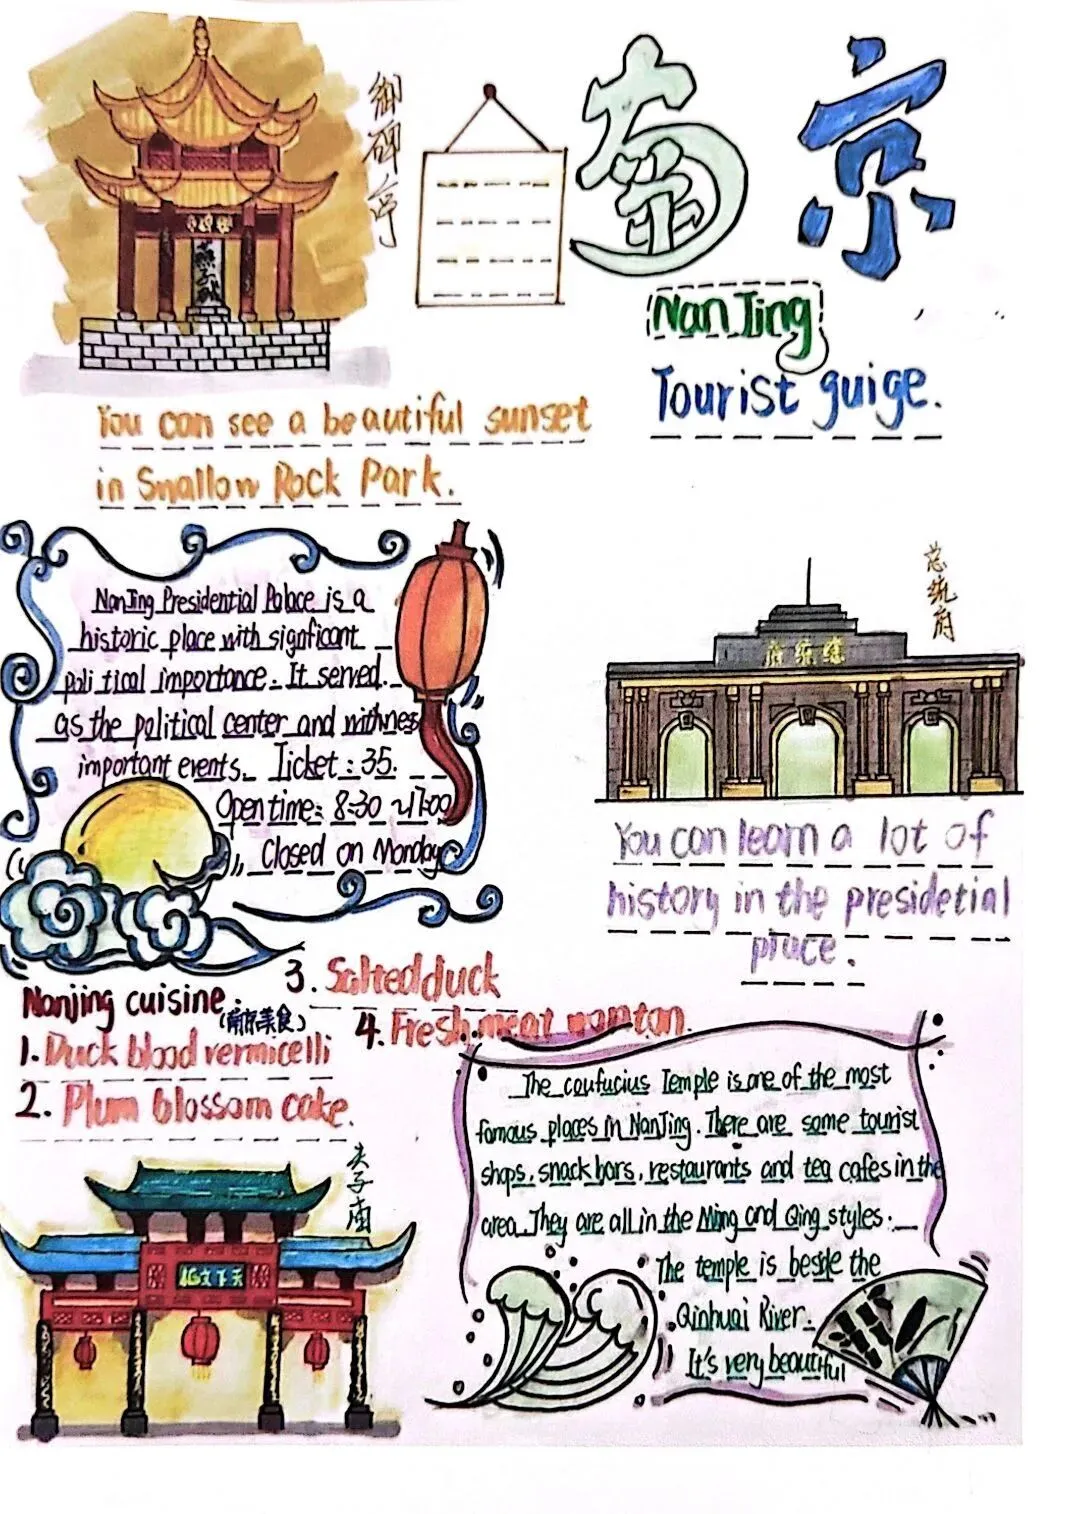 南京
NanJing
Tourist guige.
御碑亭
燕子矶
You can see a beautiful sunset
in Swallow Rock Park.
NanJing Presidential Palace is a
historic place with signficant
political importance. It served
as the political center and withness
important events. Ticket: 35.
Open time: 8:30 ~17:00
Closed on Monday
总统府
府統總
You can learn a lot of
history in the presidetial
place.
Nanjing cuisine.
(南京美食)
1. Duck blood vermicelli
2. Plum blossom cake.
3. Salted duck
4. Fresh meat wonton.
夫子庙
天下文枢
The coufucius Temple is one of the most
famous places in NanJing. There are some tourist
shops, snack bars, restaurants and tea cafes in the
area. They are all in the Ming and Qing styles.
The temple is beside the
Qinhuai River.
It's very beautiful